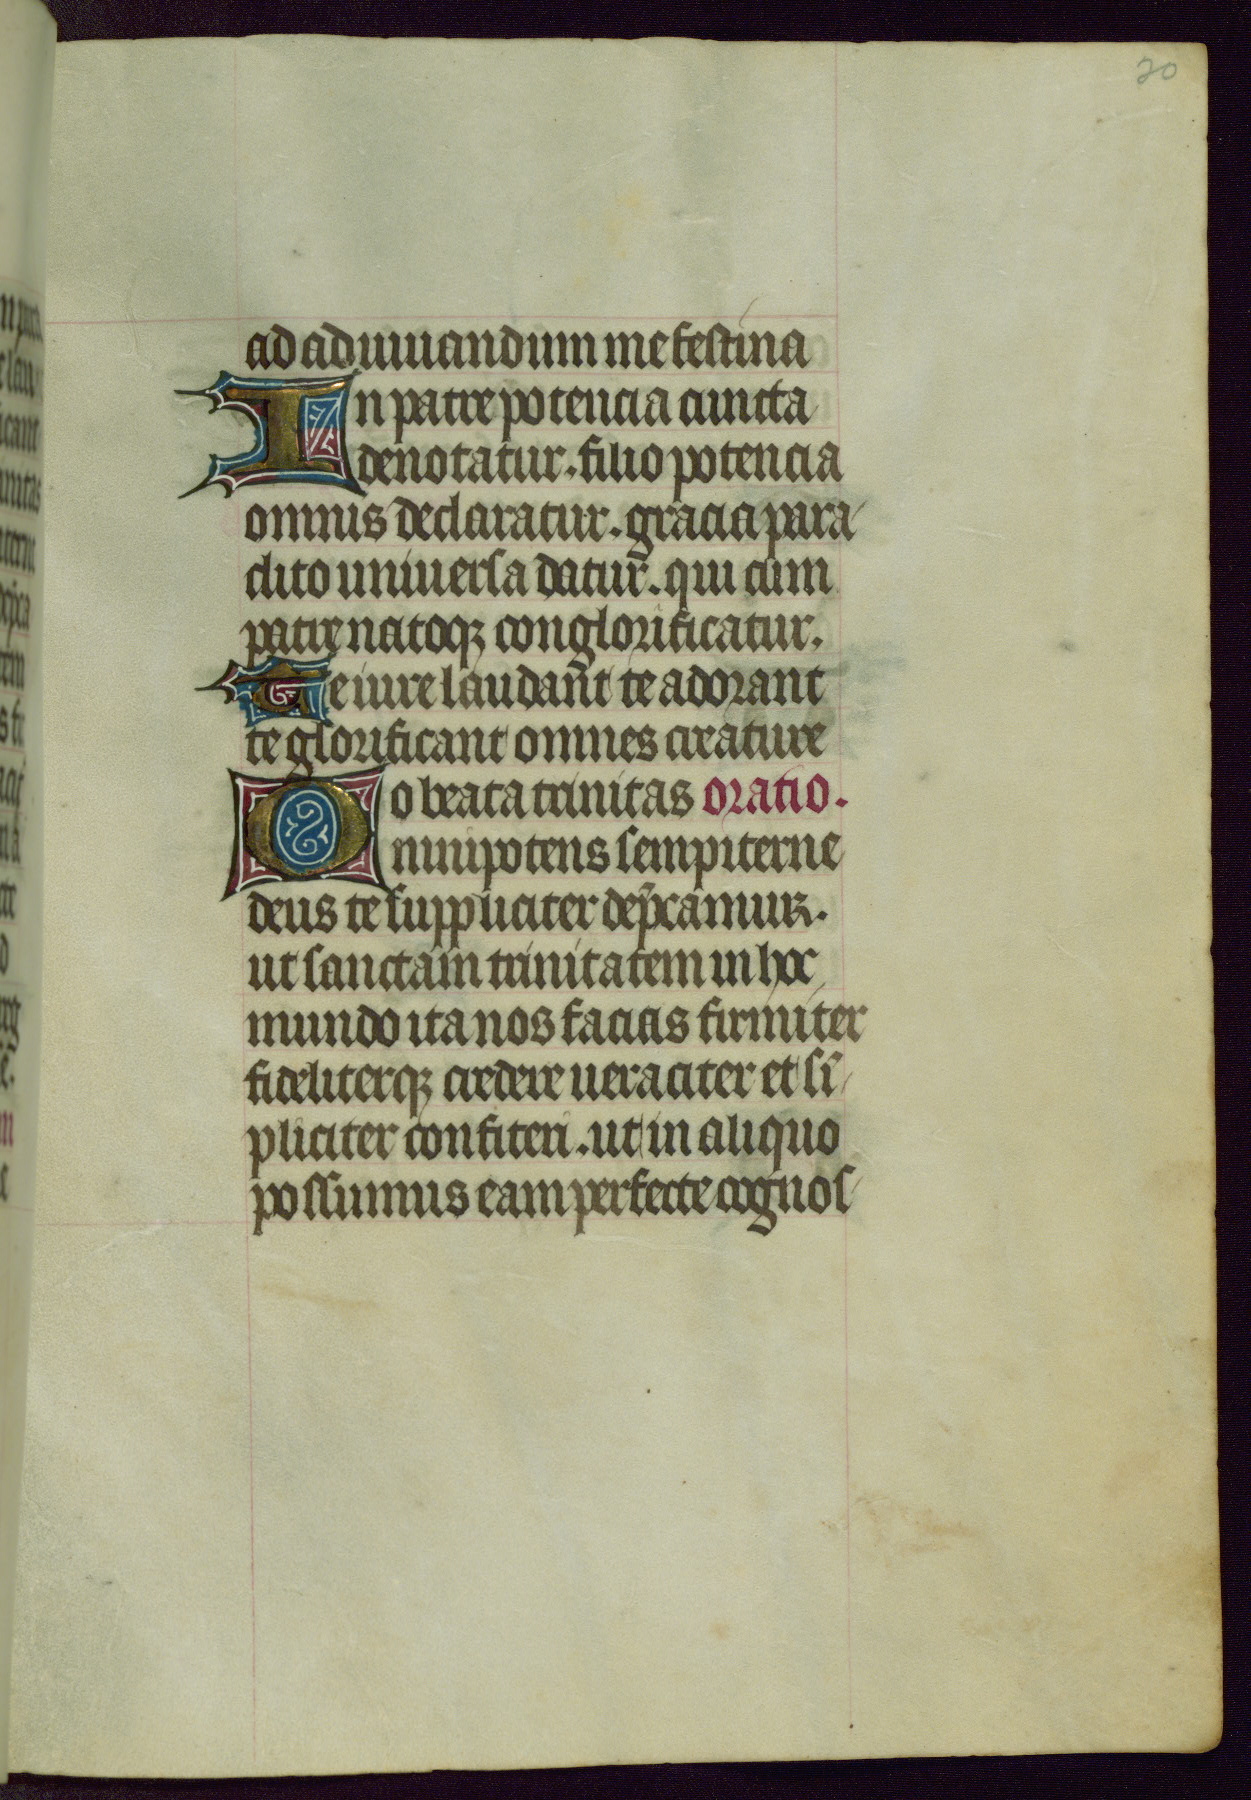 20
ad adiuuandum me festina
In patre potencia cuncta
denotatur. filio potencia
omnis declaratur. gracia para
clito uniuersa datur̄. qui cum
patre natoqꝫ conglorificatur.
Te iure laudan̄t te adorant
te glorificant omnes creature
o beata trinitas oratio.
Omnipotens sempiterne
deus te suppliciter dep̄camur.
ut sanctam trinitatem in hoc
mundo ita nos facias firmiter
fideliterqꝫ credere ueraciter et sī
pliciter confiteri. ut in aliquo
possumus eam perfecte cognos